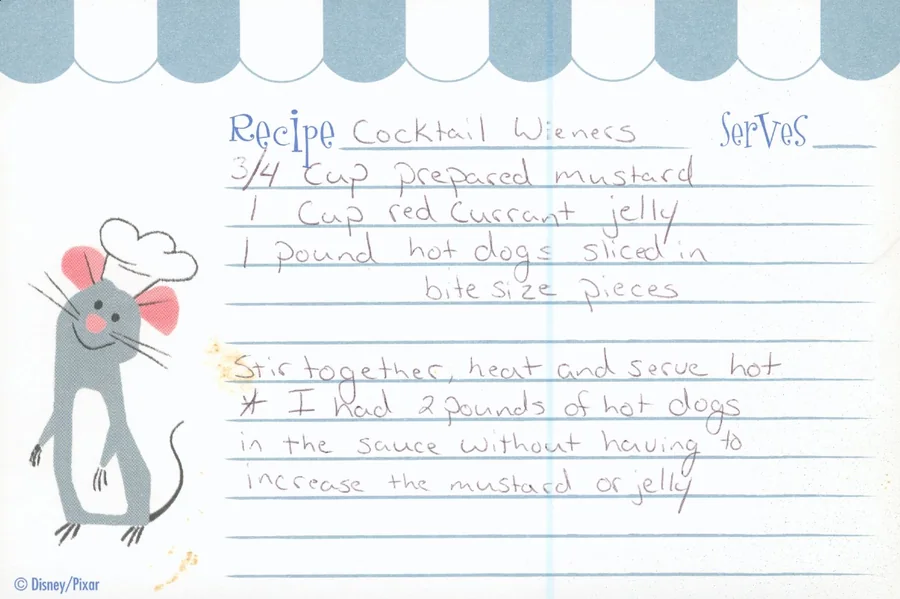 Recipe Cocktail Wieners Serves
3/4 Cup prepared mustard
1 Cup red Currant jelly
1 pound hot dogs sliced in
bite size pieces
Stir together, heat and serve hot
* I had 2 pounds of hot dogs
in the sauce without having to
increase the mustard or jelly
© Disney/Pixar